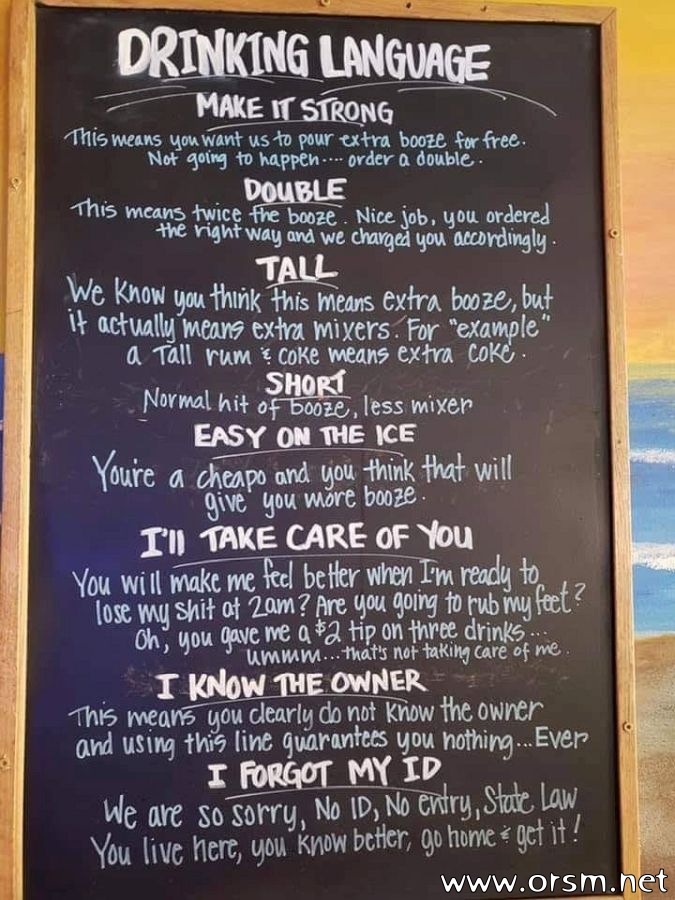 DRINKING LANGUAGE
MAKE IT STRONG
This means you want us to pour extra booze for free.
Not going to happen.... order a double.
DOUBLE
This means twice the booze. Nice job, you ordered
the right way and we charged you accordingly.
TALL
We know you think this means extra booze, but
it actually means extra mixers. For "example"
a Tall rum & coke means extra coke.
SHORT
Normal hit of booze, less mixer
EASY ON THE ICE
You're a cheapo and you think that will
give you more booze.
I'll TAKE CARE OF YOU
You will make me feel better when I'm ready to
lose my shit at 2am? Are you going to rub my feet?
Oh, you gave me a $2 tip on three drinks...
ummm...that's not taking care of me.
I KNOW THE OWNER
This means you clearly do not know the owner
and using this line guarantees you nothing...Ever
I FORGOT MY ID
We are so sorry, No ID, No entry, State Law
You live here, you know better, go home & get it!
www.orsm.net